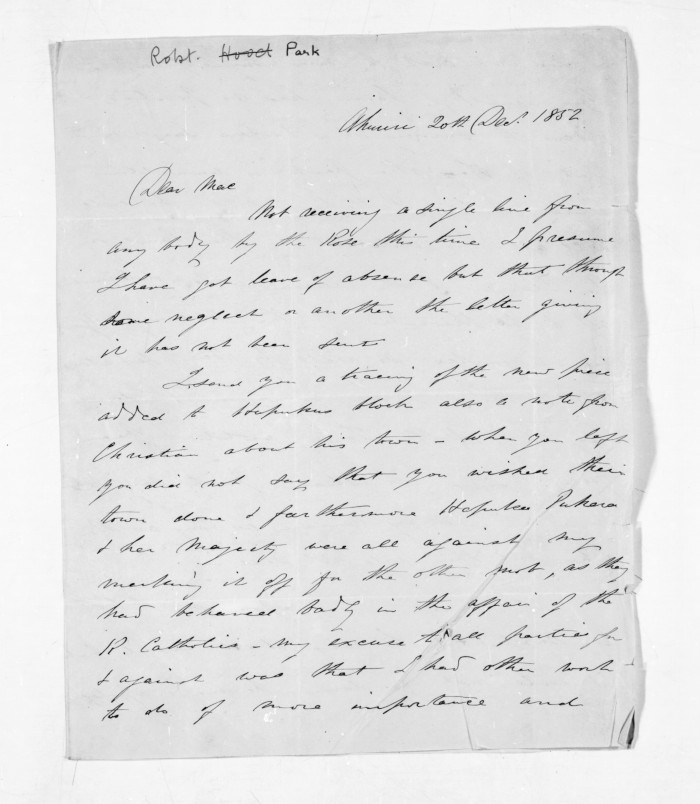 Robt. Hood Park
Ahuriri 20th Decr. 1852
Dear Mac
Not receiving a single line from
any body by the Rose this time I presume
I have got leave of absense but that through
some neglect or another the letter giving
it has not been sent
I send you a tracing of the new piece
added to Hapukus block also a note from
Christian about his town - When you left
you did not say that you wished their
town done & furthermore Hapuku Puhara
& her Majesty were all against my
marking it off for the other mob, as they
had behaved badly in the affair of the
R. Catholics - my excuse to all parties for
& against was that I had other work
to do of more importance and